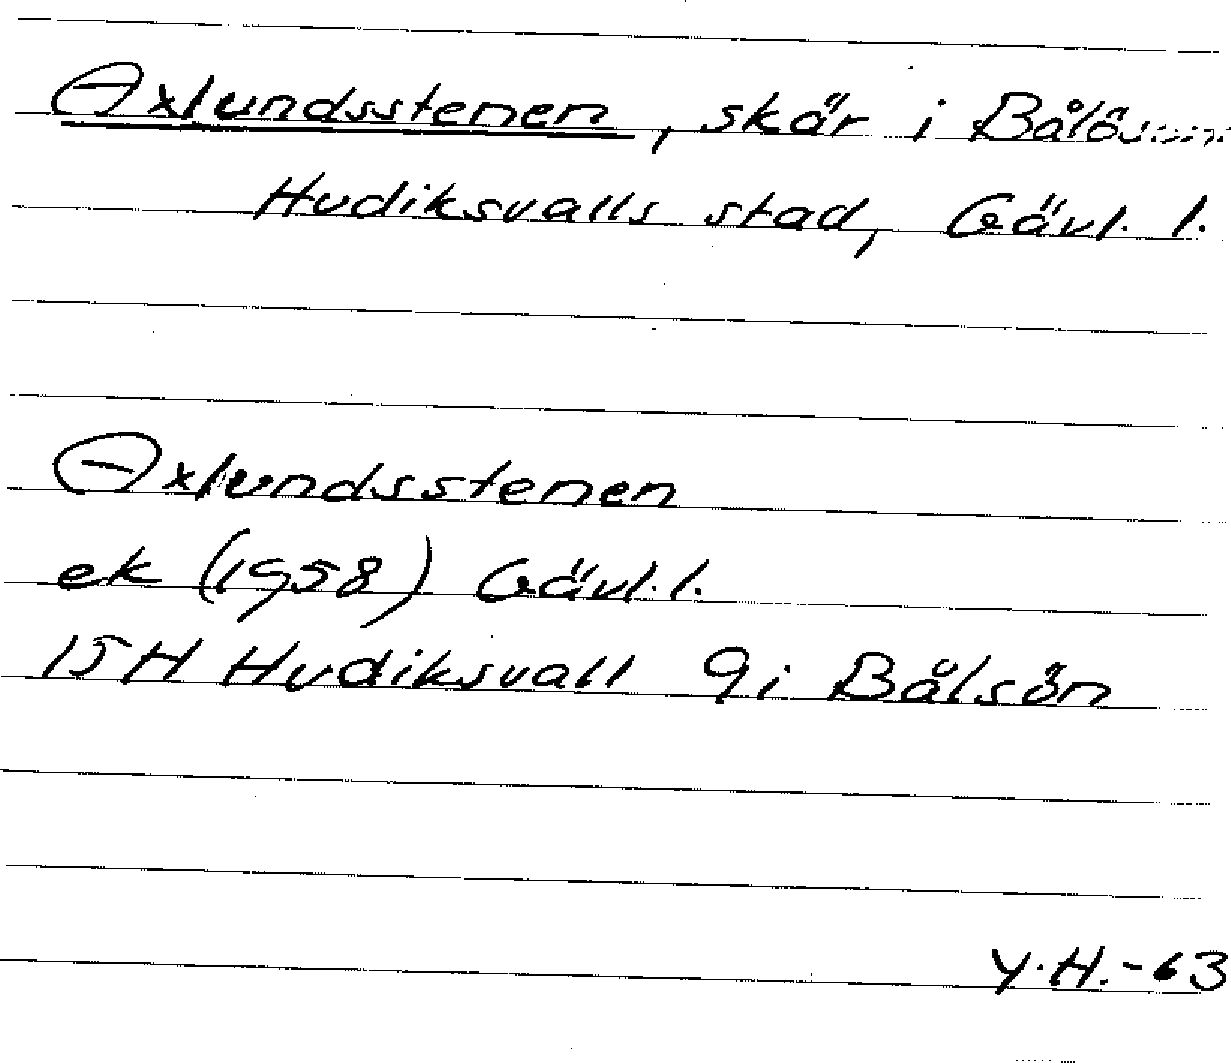 Axlundsstenen, skär i
Hudiksvalls stad, Gävl. l.
Axlundsstenen
ek (1958) Gävl. l.
15H Hudiksvall 9i Bålsön
Y.H.-63